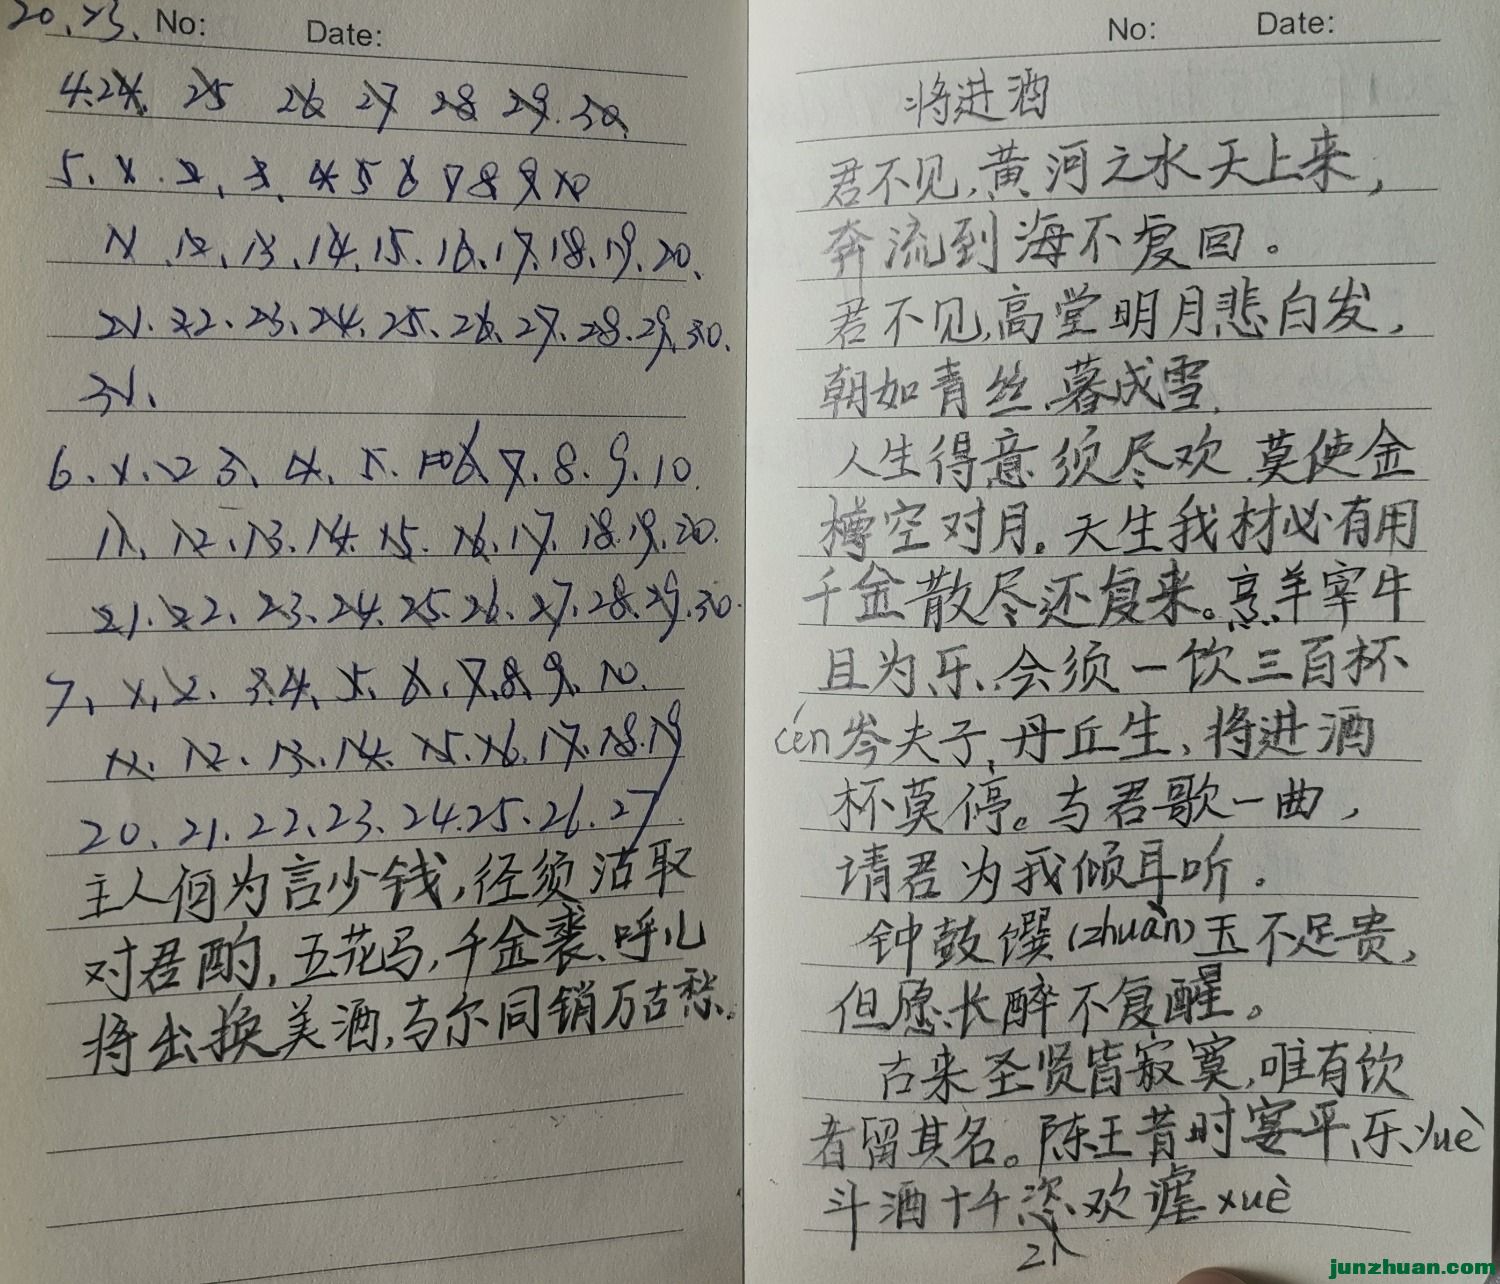 20、23、 No: Date:
4.24. 25 26 27 28 29.30.
5、1.2、3、4 5 6 7 8 9 10
11、12、13、14、15、16、17、18、19、20、
21、22、23、24、25、26、27、28、29、30、
31、
6、1、2 3、4、5、6、7、8、9、10.
11、12、13、14、15、16、17、18、19、20.
21、22、23、24、25、26、27、28、29、30.
7、1、2、3、4、5、6、7、8、9、10、
11、12、13、14、15、16、17、18、19
20、21、22、23、24、25、26、27
主人何为言少钱，径须沽取
对君酌，五花马，千金裘、呼儿
将出换美酒，与尔同销万古愁。
No: Date:
将进酒
君不见，黄河之水天上来，
奔流到海不复回。
君不见，高堂明月悲白发，
朝如青丝暮成雪.
人生得意须尽欢 莫使金
樽空对月。天生我材必有用
千金散尽还复来。烹羊宰牛
且为乐、会须一饮三百杯
cén 岑夫子，丹丘生，将进酒
杯莫停。与君歌一曲，
请君为我倾耳听。
钟鼓馔(zhuàn)玉不足贵，
但愿长醉不复醒。
古来圣贤皆寂寞，唯有饮
者留其名。陈王昔时宴平乐、yuè
斗酒十千恣欢谑 xuè
junzhuan.com